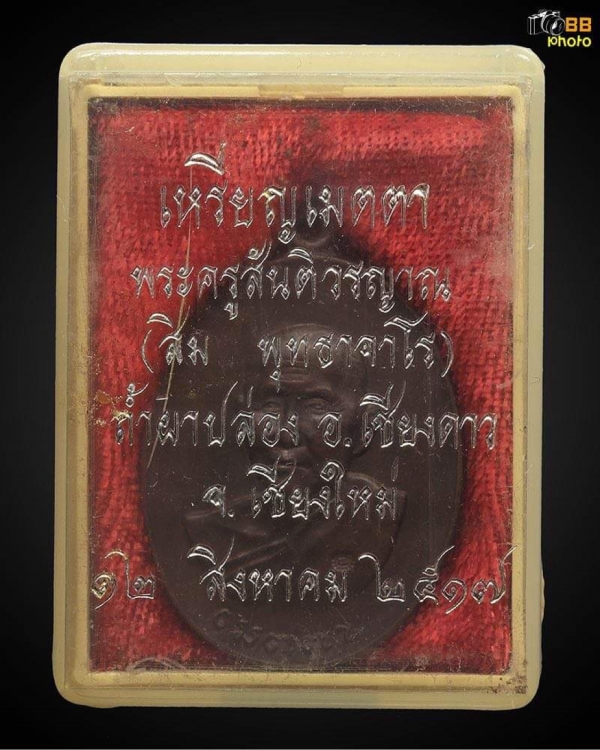 BB
photo
เหรียญเมตตา
พระครูสันติวรญาณ
(สิม พุทธาจาโร)
ถ้ำผาปล่อง อ.เชียงดาว
จ.เชียงใหม่
๑๒ สิงหาคม ๒๕๑๗